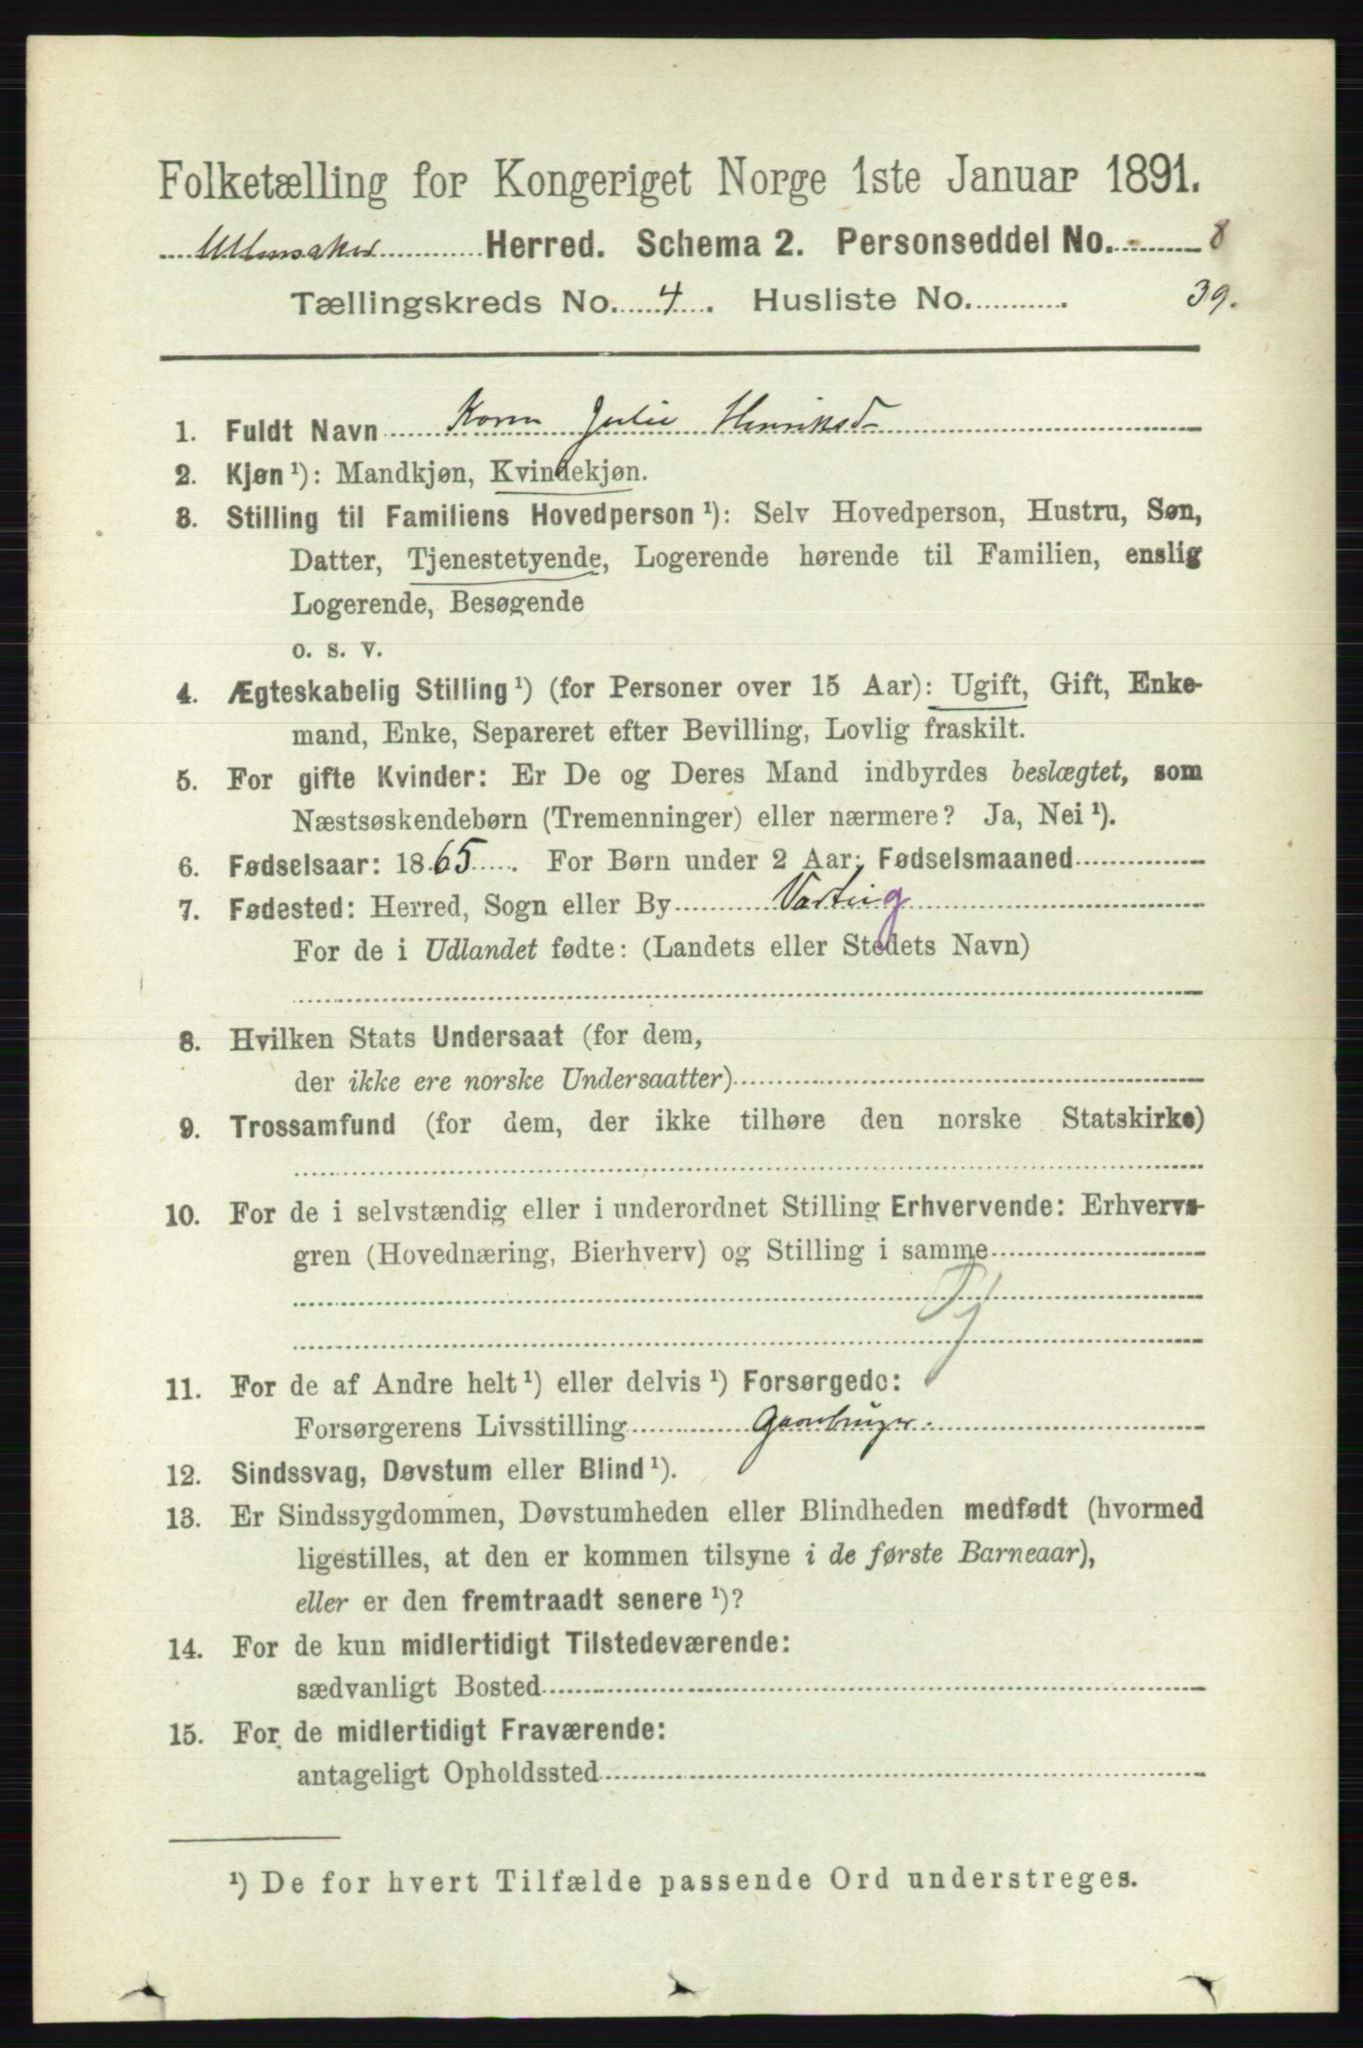 Folketælling for Kongeriget Norge 1ste Januar 1891.
Ullensaker Herred. Schema 2. Personseddel No. 8
Tællingskreds No. 4. Husliste No. 39.
1. Fuldt Navn Karen Julie Henriksd
2. Kjøn ¹): Mandkjøn, Kvindekjøn.
3. Stilling til Familiens Hovedperson ¹): Selv Hovedperson, Hustru, Søn,
Datter, Tjenestetyende, Logerende hørende til Familien, enslig
Logerende, Besøgende
o. s. v.
4. Ægteskabelig Stilling ¹) (for Personer over 15 Aar): Ugift, Gift, Enke-
mand, Enke, Separeret efter Bevilling, Lovlig fraskilt.
5. For gifte Kvinder: Er De og Deres Mand indbyrdes beslægtet, som
Næstsøskendebørn (Tremenninger) eller nærmere? Ja, Nei ¹).
6. Fødselsaar: 1865. For Børn under 2 Aar: Fødselsmaaned
7. Fødested: Herred, Sogn eller By Varteig
For de i Udlandet fødte: (Landets eller Stedets Navn)
8. Hvilken Stats Undersaat (for dem,
der ikke ere norske Undersaatter)
9. Trossamfund (for dem, der ikke tilhøre den norske Statskirke)
10. For de i selvstændig eller i underordnet Stilling Erhvervende: Erhvervs-
gren (Hovednæring, Bierhverv) og Stilling i samme
Tj
11. For de af Andre helt ¹) eller delvis ¹) Forsørgede:
Forsørgerens Livsstilling Gaardbruger.
12. Sindssvag, Døvstum eller Blind ¹).
13. Er Sindssygdommen, Døvstumheden eller Blindheden medfødt (hvormed
ligestilles, at den er kommen tilsyne i de første Barneaar),
eller er den fremtraadt senere ¹)?
14. For de kun midlertidigt Tilstedeværende:
sædvanligt Bosted
15. For de midlertidigt Fraværende:
antageligt Opholdssted
¹) De for hvert Tilfælde passende Ord understreges.